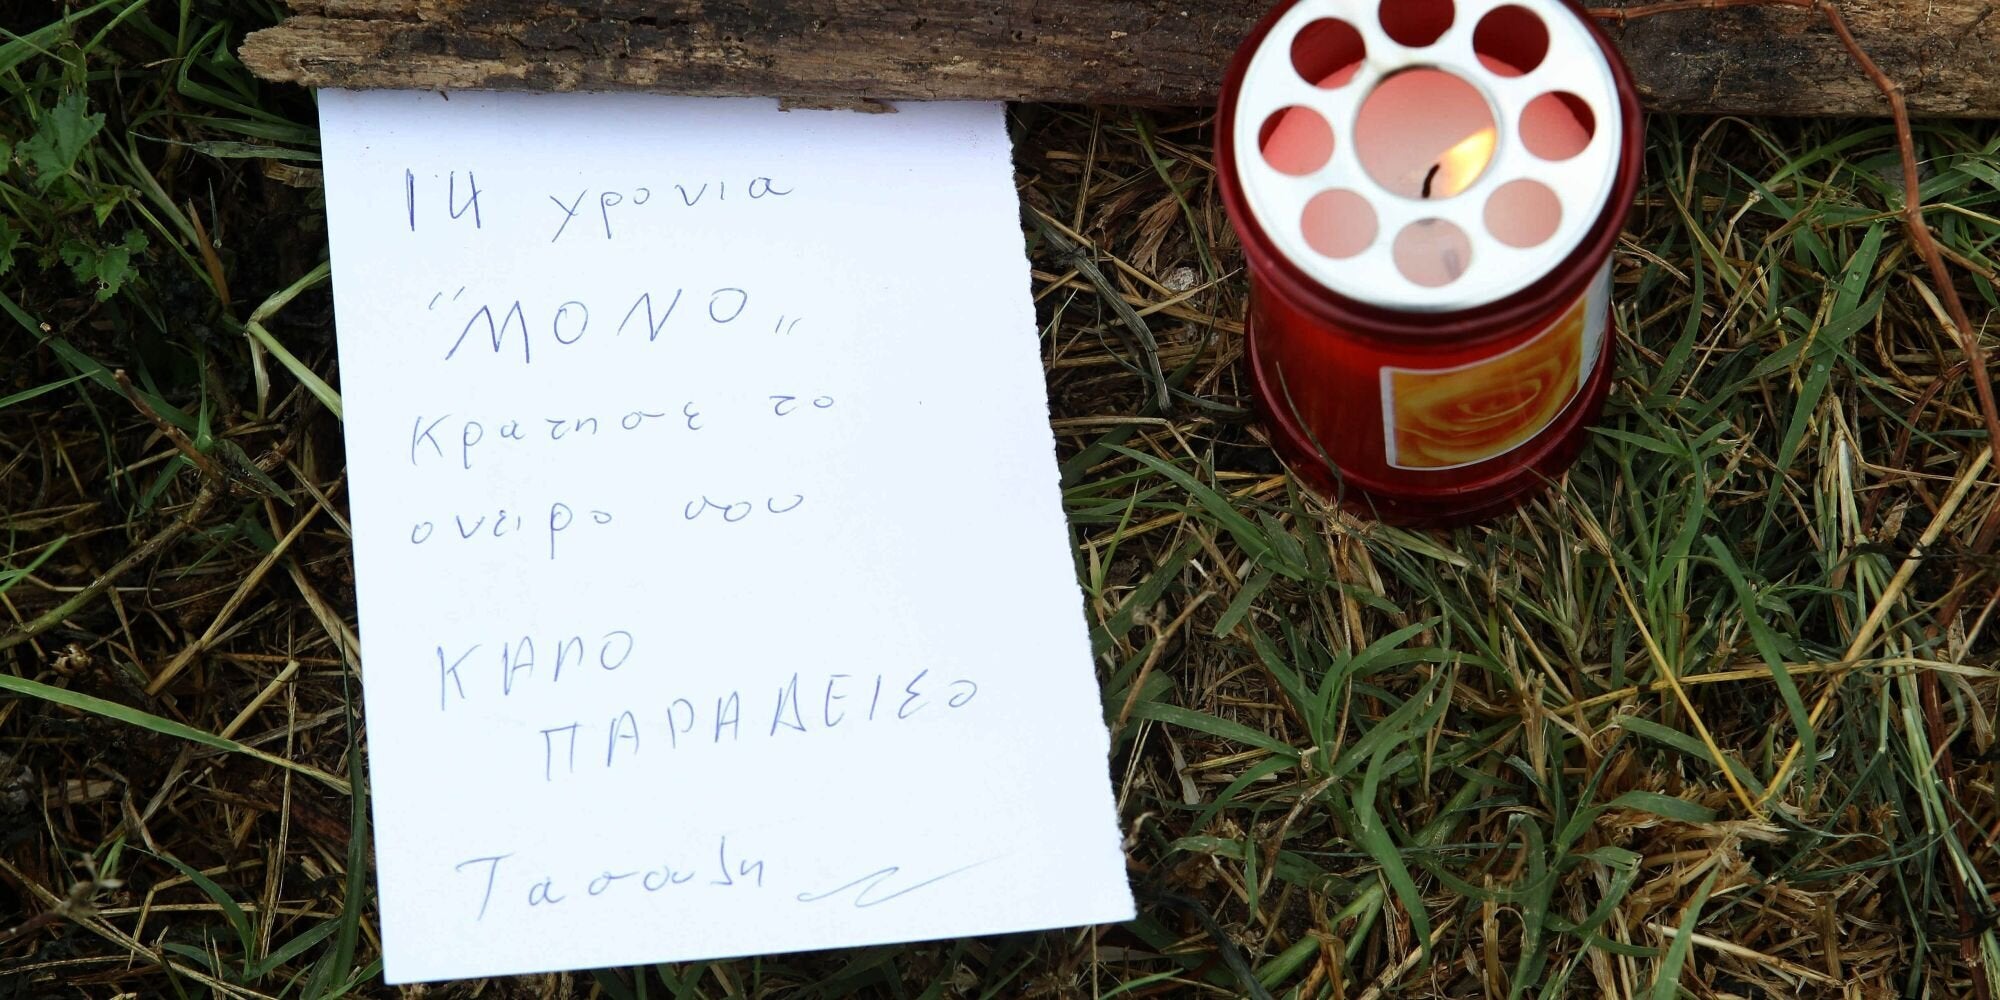 14 χρονια
"ΜΟΝΟ"
Κρατησε το
ονειρο σου
ΚΑΠΟ
ΠΑΡΑΔΕΙΣΟ